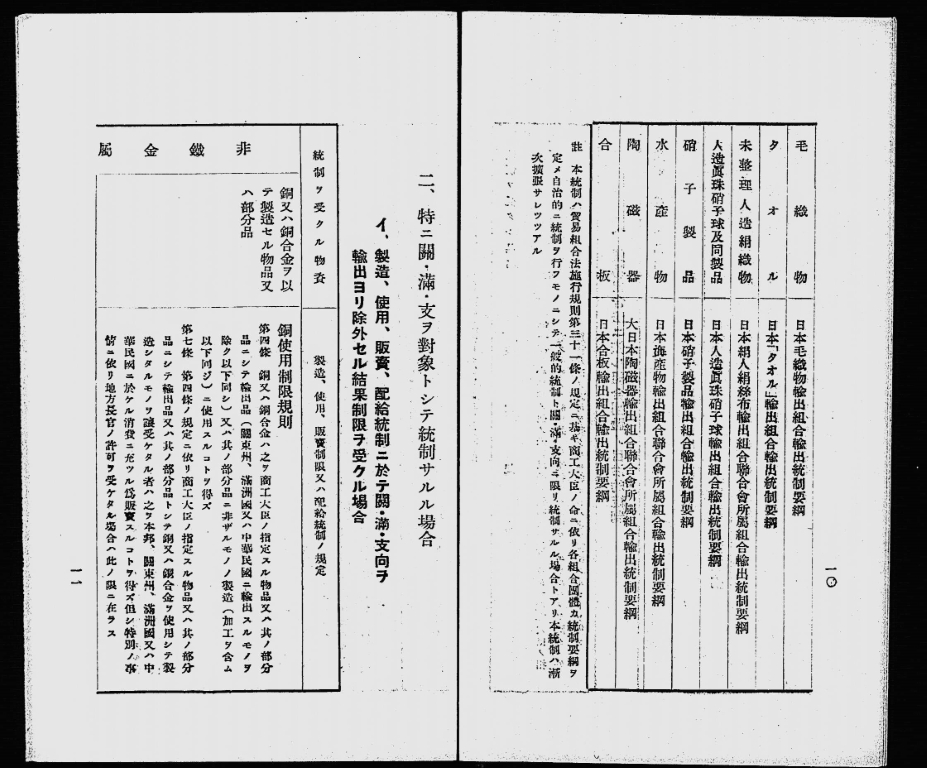 毛織物 日本毛織物輸出組合輸出統制要綱
タオル 日本「タオル」輸出組合輸出統制要綱
未整理人造絹織物 日本絹人絹絲布輸出組合聯合會所屬組合輸出統制要綱
人造眞珠硝子球及同製品 日本人造眞珠硝子球輸出組合輸出統制要綱
硝子製品 日本硝子製品輸出組合輸出統制要綱
水産物 日本海産物輸出組合聯合會所屬組合輸出統制要綱
陶磁器 大日本陶磁器輸出組合聯合會所屬組合輸出統制要綱
合板 日本合板輸出組合輸出統制要綱
註 本統制ハ貿易組合法施行規則第三十一條ノ規定ニ基キ商工大臣ノ命ニ依リ各組合團體カ統制要綱ヲ
定メ自治的ニ統制ヲ行フモノニシテ一般的統制ト關・滿・支向ニ限リ統制サルル場合トアリ本統制ハ漸
次擴張サレツツアル
一〇
二、特ニ關・滿・支ヲ對象トシテ統制サルル場合
イ、製造、使用、販賣、配給統制ニ於テ關・滿・支向ヲ
輸出ヨリ除外セル結果制限ヲ受クル場合
統制ヲ受クル物資 製造、使用、販賣制限又ハ配給統制ノ規定
非鐵金屬
銅又ハ銅合金ヲ以
テ製造セル物品又
ハ部分品
銅使用制限規則
第四條 銅又ハ銅合金ハ之ヲ商工大臣ノ指定スル物品又ハ其ノ部分
品ニシテ輸出品(關東州、滿洲國又ハ中華民國ニ輸出スルモノヲ
除ク以下同シ)又ハ其ノ部分品ニ非ザルモノノ製造(加工ヲ含ム
以下同ジ)ニ使用スルコトヲ得ズ
第七條 第四條ノ規定ニ依リ商工大臣ノ指定スル物品又ハ其ノ部分
品ニシテ輸出品又ハ其ノ部分品トシテ銅又ハ銅合金ヲ使用シテ製
造シタルモノヲ讓受ケタル者ハ之ヲ本邦、關東州、滿洲國又ハ中
華民國ニ於ケル消費ニ充ツル爲販賣スルコトヲ得ズ但シ特別ノ事
情ニ依リ地方長官ノ許可ヲ受ケタル場合ハ此ノ限ニ在ラス
一一